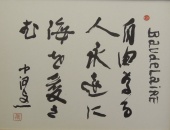 BAUDELAIRE
自由なる
人永遠に
海を愛さ
む